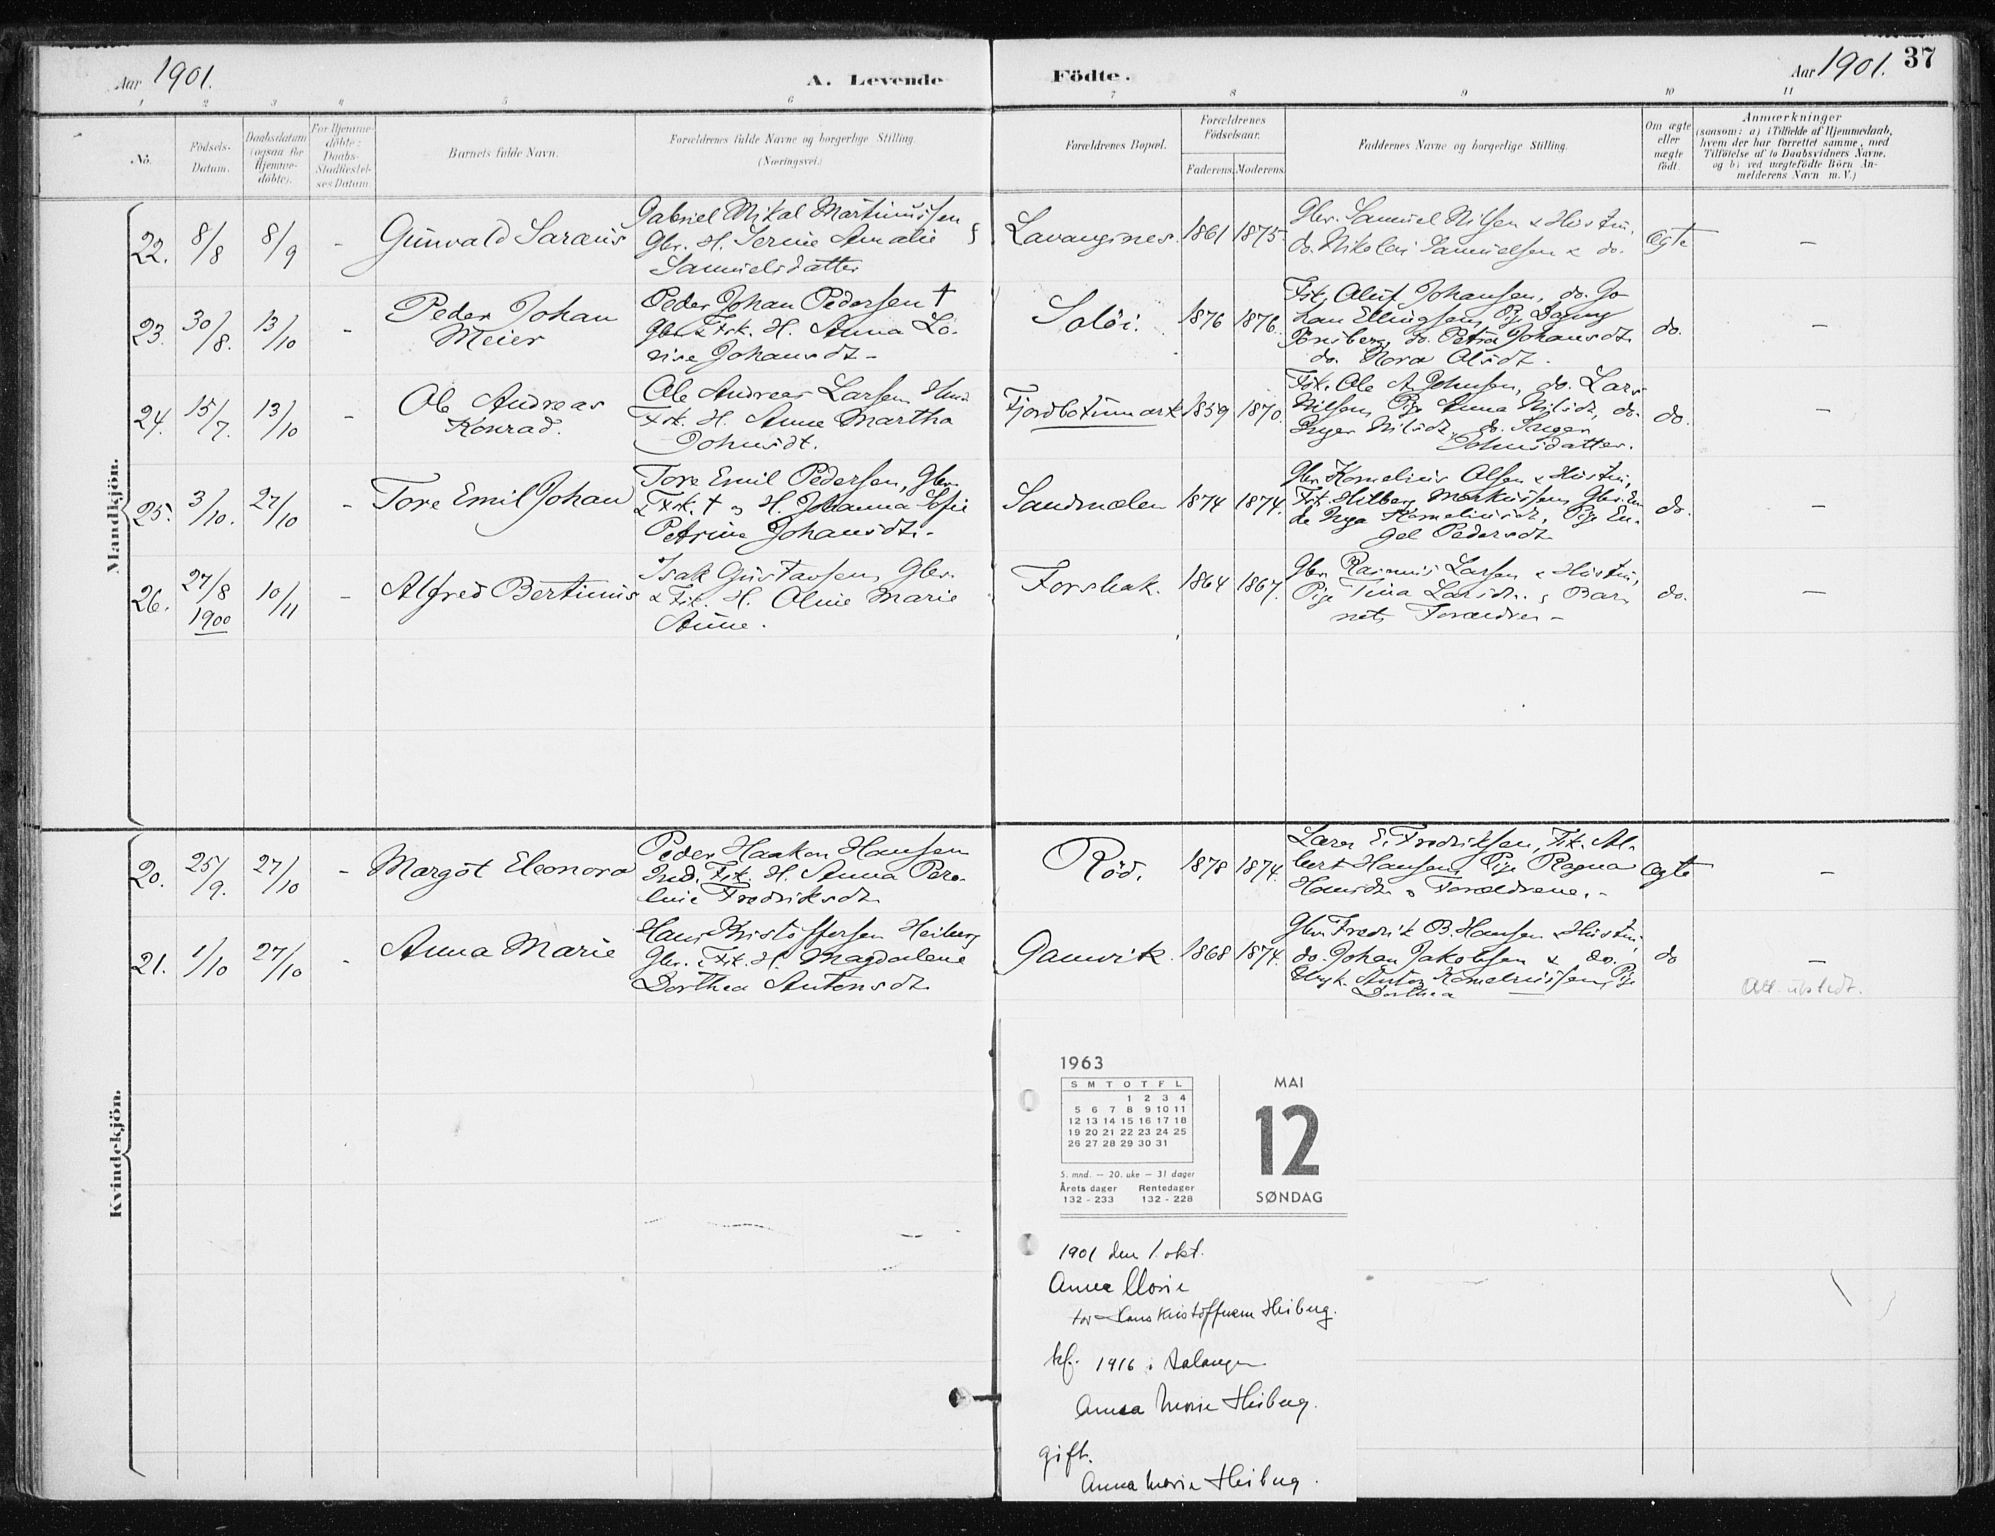 Aar 1901.
A. Levende
Födte.
Aar 1901. 37
1 2 3 4 5 6 7 8 9 10 11
No.
Födsels-
Datum.
Daabsdatum
(ogsaa for
Hjemme-
döbte).
For Hjemme-
döbte:
Daabs-
Stadfæstel-
ses Datum
Barnets fulde Navn.
Forældrenes fulde Navne og borgerlige Stilling.
(Næringsvei.)
Forældrenes Bopæl.
Forældrenes
Födselsaar.
Faderens. Moderens.
Faddernes Navne og borgerlige Stilling.
Om ægte
eller
uægte
födt.
Anmærkninger
(saasom: a) i Tilfælde af Hjemmedaab,
hvem der har forrettet samme, med
Tilföielse af to Daabsvidners Navne,
og b) ved uægtefödte Börn An-
melderens Navn m. V.)
Mandkjön.
22. 8/8 8/9 - Gunvald Saraus
Gabriel Mikal Martinussen
Gbr. H. Serine Amalie
Samuelsdatter
Lavangsnes. 1861 1875
Gbr. Samuel Nilsen & Hustru,
do. Nikolai Samuelsen & do.
Ægte —
23. 30/8. 13/10 - Peder Johan
Meier
Peder Johan Pedersen †
Gbr. & Fsk. H. Anna Lo-
vise Johansdt.
Salöi. 1876 1876.
Fsk. Oluf Johansen, do. Jo
han Ellingsen, Pige Dagny
Tönsberg, do. Petra Johansdt.
do. Nora Olsdt.
do. —
24. 15/7. 13/10 - Ole Andreas
Konrad.
Ole Andreas Larsen,
Fsk. H. Anne Martha
Johnsdt.
Fjordbotnmark 1859 1870.
Fsk. Ole A. Johnsen, do. Lars
Nilsen, Pige Anna Nilsdt., do.
Inger Nilsdt., do. Inger
Johnsdatter.
do. —
25. 3/10. 27/10 - Tore Emil Johan
Tore Emil Pedersen, Gbr.
& Fsk. † og H. Johanna Sofie
Petrine Johansdt.
Sandmælen 1874 1874.
Gbr. Kornelius Olsen & Hustru,
Fsk. Hilberg Markussen, Gbr. En
ke Inga Korneliusdt., Pige En-
gel Pedersdt.
do. —
26. 27/8 1900 10/11 - Alfred Bertinus
Isak Gustavsen, Gbr.
& Fsk. H. Oline Marie
Anne.
Forshak. 1864 1867.
Gbr. Rasmus Larsen & Hustru,
Pige Tina Larsdt. & Bar
nets Forældre -
do. —
Kvindekjön.
20. 25/9. 27/10 - Margot Eleonora
Peder Haakon Hansen
Ind. Fsk. H. Anna Pere-
line Fredriksdt.
Röd. 1878 1874.
Lærer E. Fredriksen, Fsk. Al-
bert Hansen, Pige Ragna
Hansdt. & Forældrene. -
Ægte —
21. 1/10 27/10 - Anna Marie
Hans Kristoffersen Heiberg
Gbr. & Fsk. H. Magdalene
Dorthea Antonsdt.
Gamvik. 1868 1874.
Gbr. Fredrik B. Hansen & Hustru,
do. Johan Jakobsen & do.
Ungk. Anton Korneliussen, Pige
Dorthea —
do —
Att. utstedt.
1963
S M T O T F L
1 2 3 4
5 6 7 8 9 10 11
12 13 14 15 16 17 18
19 20 21 22 23 24 25
26 27 28 29 30 31
5. mnd. — 20. uke — 31 dager
Årets dager Rentedager
132 - 233 132 - 228
MAI
12
SØNDAG
1901 den 1. okt.
Anna Marie
far Hans Kristoffersen Heiberg.
kf. 1916 i Salangen
Anna Marie Heiberg.
gift.
Anna Marie Heiberg.